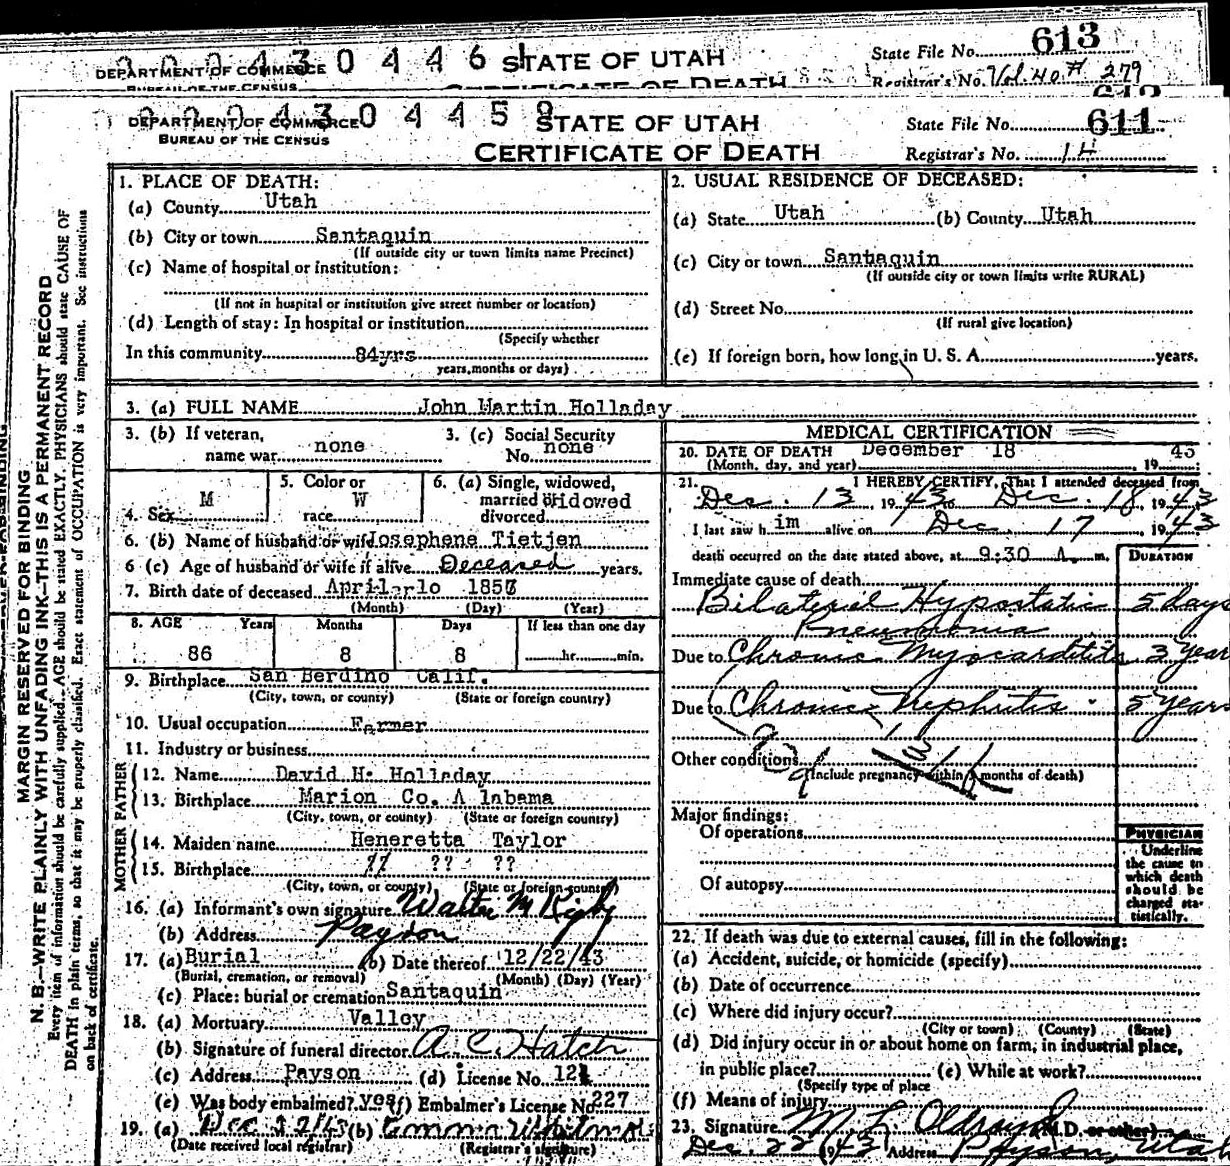 DEPARTMENT OF COMMERCE 0 4 4 6 STATE OF UTAH State File No. 613
BUREAU OF THE CENSUS CERTIFICATE OF DEATH Registrar's No. Vol 40 # 279
DEPARTMENT OF COMMERCE 0 4 4 5 9 STATE OF UTAH State File No. 611
BUREAU OF THE CENSUS CERTIFICATE OF DEATH Registrar's No. 14
MARGIN RESERVED FOR BINDING
N. B.—WRITE PLAINLY WITH UNFADING INK—THIS IS A PERMANENT RECORD
Every item of information should be carefully supplied. AGE should be stated EXACTLY. PHYSICIANS should state CAUSE OF
DEATH in plain terms, so that it may be properly classified. Exact statement of OCCUPATION is very important. See instructions
on back of certificate.
1. PLACE OF DEATH:
(a) County Utah
(b) City or town Santaquin
(If outside city or town limits name Precinct)
(c) Name of hospital or institution:
(If not in hospital or institution give street number or location)
(d) Length of stay: In hospital or institution
(Specify whether
In this community 84yrs
years, months or days)
2. USUAL RESIDENCE OF DECEASED:
(a) State Utah (b) County Utah
(c) City or town Santaquin
(If outside city or town limits write RURAL)
(d) Street No.
(If rural give location)
(e) If foreign born, how long in U. S. A. years.
3. (a) FULL NAME John Martin Holladay
3. (b) If veteran, name war none
3. (c) Social Security No. none
4. Sex M
5. Color or race W
6. (a) Single, widowed, married widowed divorced
6. (b) Name of husband or wife Josephene Tietjen
6 (c) Age of husband or wife if alive Deceased years.
7. Birth date of deceased April 10 1857
(Month) (Day) (Year)
8. AGE Years Months Days If less than one day
86 8 8 hr. min.
9. Birthplace San Berdino Calif.
(City, town, or county) (State or foreign country)
10. Usual occupation Farmer
11. Industry or business
FATHER
12. Name David H. Holladay
13. Birthplace Marion Co. Alabama
(City, town, or county) (State or foreign country)
MOTHER
14. Maiden name Heneretta Taylor
15. Birthplace ?? ?? ??
(City, town, or county) (State or foreign country)
16. (a) Informant's own signature Walter M Rigby
(b) Address Payson
17. (a) Burial (b) Date thereof 12/22/43
(Burial, cremation, or removal) (Month) (Day) (Year)
(c) Place: burial or cremation Santaquin
18. (a) Mortuary Valley
(b) Signature of funeral director A. C. Hatch
(c) Address Payson (d) License No. 121
(e) Was body embalmed? yes (f) Embalmer's License No. 227
19. (a) Dec 22/43 (b)
(Date received local registrar) (Registrar's signature)
MEDICAL CERTIFICATION
20. DATE OF DEATH December 18 1943
(Month, day, and year)
21. I HEREBY CERTIFY, That I attended deceased from
Dec. 13 1943 to Dec. 18 1943
I last saw him alive on Dec. 17 1943
death occurred on the date stated above, at 9:30 A. m. DURATION
Immediate cause of death
Bilateral Hypostatic 5 days
Pneumonia
Due to Chronic Myocarditits 3 Year
Due to Chronic Nephritis 5 Years
Other conditions
(Include pregnancy within 3 months of death)
Major findings:
Of operations
Of autopsy
PHYSICIAN
Underline
the cause to
which death
should be
charged sta-
tistically.
22. If death was due to external causes, fill in the following:
(a) Accident, suicide, or homicide (specify)
(b) Date of occurrence
(c) Where did injury occur?
(City or town) (County) (State)
(d) Did injury occur in or about home on farm, in industrial place,
in public place? (e) While at work?
(Specify type of place
(f) Means of injury
23. Signature M L Oldroyd (M.D. or other)
Dec. 22 1943 Address Payson, Utah